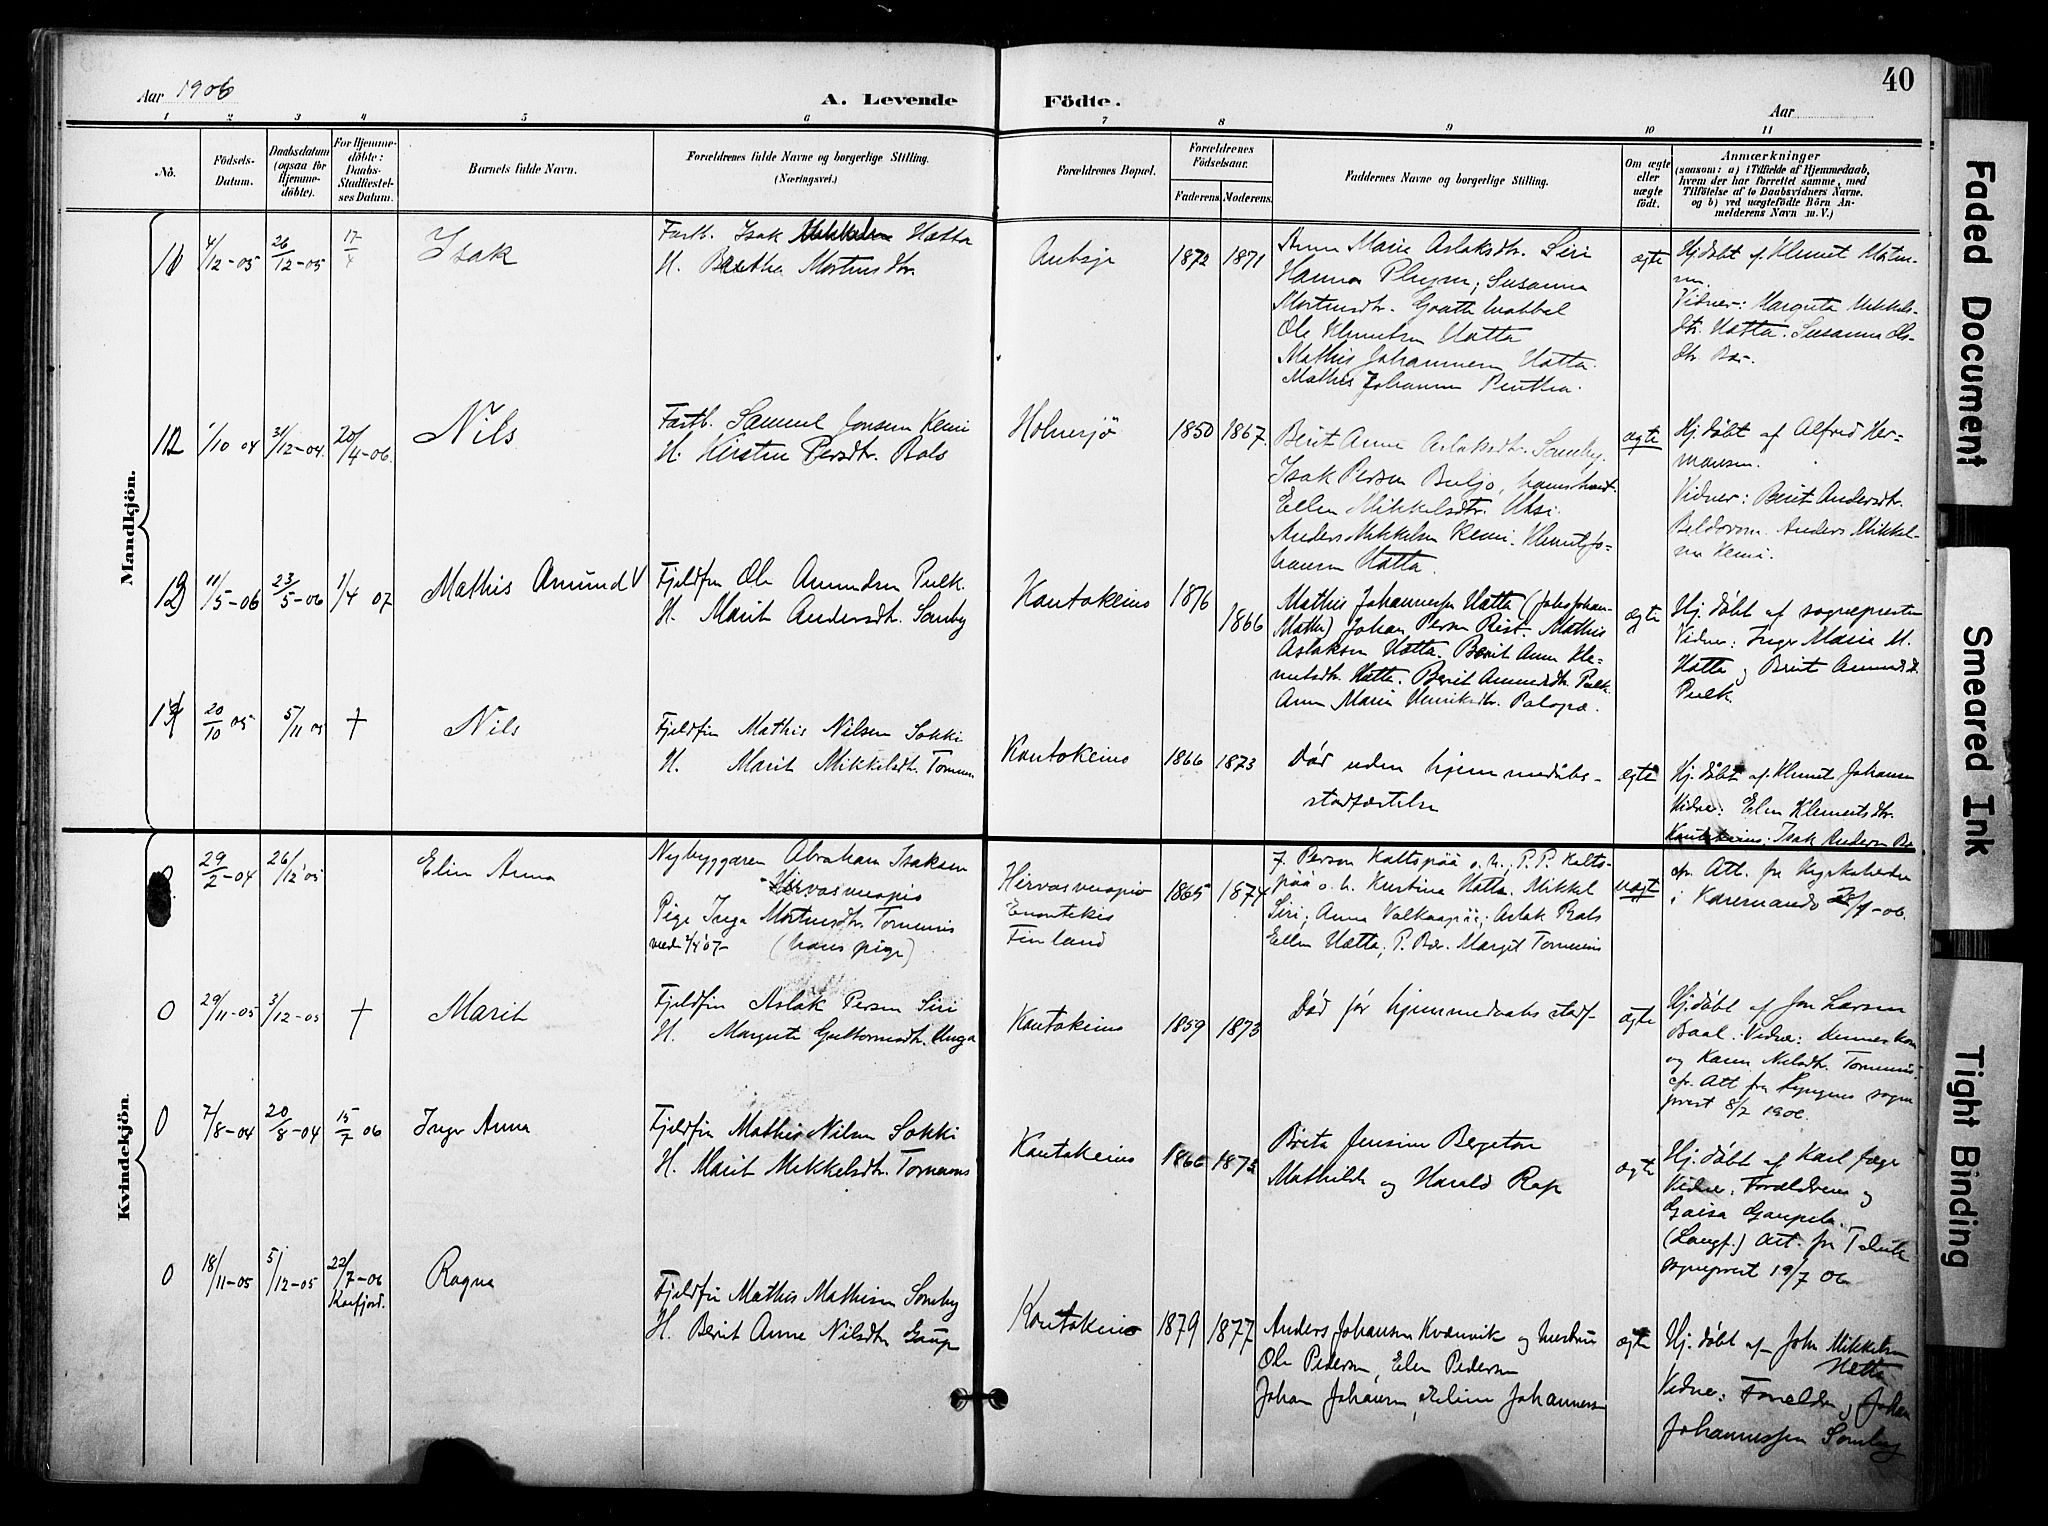 40
Aar 1906
A. Levende
Födte.
Aar
1 2 3 4 5 6 7 8 9 10 11
No.
Födsels-Datum.
Daabsdatum (ogsaa for Hjemme-döbte).
For Hjemme-döbte: Daabs-Stadfæstel-ses Datum.
Barnets fulde Navn.
Forældrenes fulde Navne og borgerlige Stilling.
(Næringsvei.)
Forældrenes Bopæl.
Forældrenes Födselsaar.
Faderens. Moderens.
Faddernes Navne og borgerlige Stilling.
Om ægte eller uægte födt.
Anmærkninger
(saasom: a) i Tilfælde af Hjemmedaab, hvem der har forrettet samme, med Tilföielse af to Daabsvidners Navne. og b) ved uægtefödte Börn An-melderens Navn m. V.)
Mandkjön.
11 4/12-05 26/12-05 17/4 Isak
Fastb. Isak Mikkelsen Hætta
H. Berthe Mortensdtr.
1872 1871
Anne Marie Aslaksdtr. Siri
Hanna Playm; Susanna
Mortensdtr.
Ole Klemetsen Hætta
Mathis Johannesen Hætta
Mathis Johannesen Pentha.
ægte
Hj.døbt af Klemet Morten-
sen.
Vidner: Margreta Mikkels-
dtr. Hætta. Susanna Ols-
dtr. Bær.
12 1/10 04 31/12-04. 20/4-06. Nils
Fastb. Samuel Jonsen Kemi
H. Kirsten Persdtr. Bals
1850 1867.
Berit Anne Aslaksdtr. Somby.
Isak Persen Buljo,
Ellen Mikkelsdtr. Utsi.
Anders Mikkelsen Kemi. Klemet Jo-
hansen Hætta.
ægte
Hj.døbt af Alfred Her-
mansen.
Vidner: Berit Andersdtr.
Anders Mikkel-
sen Kemi.
13 11/5-06 23/5-06 1/4 07 Mathis Amund
Fjeldfin Ole Amundsen Pulk.
H. Marit Andersdtr. Somby
Kautokeino 1876 1866
Mathis Johannessen Hætta (Johs Johan-
Hætta) Johan Persen Rist. Mathis
Aslaksen Hætta. Berit Anne Kle-
metsdtr. Hætta. Berit Amundsdtr. Pulk.
Anne Maria Henriksdtr. Palopæ.
ægte
Hj. døbt af sognepresten
Vidner: Inger Maria M.
Hætta og Berit Amundsd.
Pulk.
14 20/10 05 5/11 05 † Nils
Fjeldfin Mathis Nilsen Sokki
H. Marit Mikkelsdtr. Tornensis
Kautokeino 1866 1873
Død uden hjemmedåbs-
stadfæstelse
ægte
Hj. døbt af Klemet Johansen
Vidner: Elen Klemetsdtr.
Kautokeino; Isak Andersen Bæ
Kvindekjön.
29/2-04 26/12 05 Elin Anna
Nybyggaren Abraham Isaksen
Hirvasvuopio
Pige Inga Mortensdtr. Tornensis
(hans pige)
Hirvasvuopio
Enontekis
Finland
1865 1874
J. Persson Kaltopää o. h., P. P. Kalto-
pää o. h. Kristina Hætta. Mikkel
Siri; Anna Valkeapää; Aslak Bals
Ellen Hætta; P. Bær. Margit Tornensis
uægt
cfr. Att. fra Kyrkoherden
i Karesuando
0 29/11-05 3/12-05 † Marit
Fjeldfin Aslak Persen Siri
H. Margrete Guttormsdtr. Unga
Kautokeino 1859 1873
Død før hjemmedaabs stadf-
ægte
Hj. døbt af Jon Larsen
Baal. Vidner: Dennes kone
og Karen Nilsdtr. Tornensis
cfr. Att fra Lyngens sogne
prest 8/2 1906.
0 7/8-04 20/8-04 15/7 06 Inger Anna
Fjeldfin Mathis Nilsen Sokki
H. Marit Mikkelsdtr. Tornensis
Kautokeino 1866 1873
Brita Jensine Bergeton
Mathilde og Harald Rap
ægte
Hj. døbt af Karl Jæger
Vidner: Forældrene og
Gaisa Gaupela.
(Langf.) Att. fra Talvik
sogneprest 19/7 06
0 18/11-05 5/12-05 22/7-06 Kaafjord. Ragna
Fjeldfin Mathis Mathisen Somby
H. Berit Anne Nilsdtr Gaup
Kautokeino 1879 1877
Anders Johansen Kvænvik og hustru
Ole Pedersen, Elen Pedersen
Johan Johansen, Eline Johannesen
ægte
Hj. døbt af John Mikkelsen
Hætta
Vidner: Forældre, Johan
Johannessen Somby
Faded Document
Smeared Ink
Tight Binding